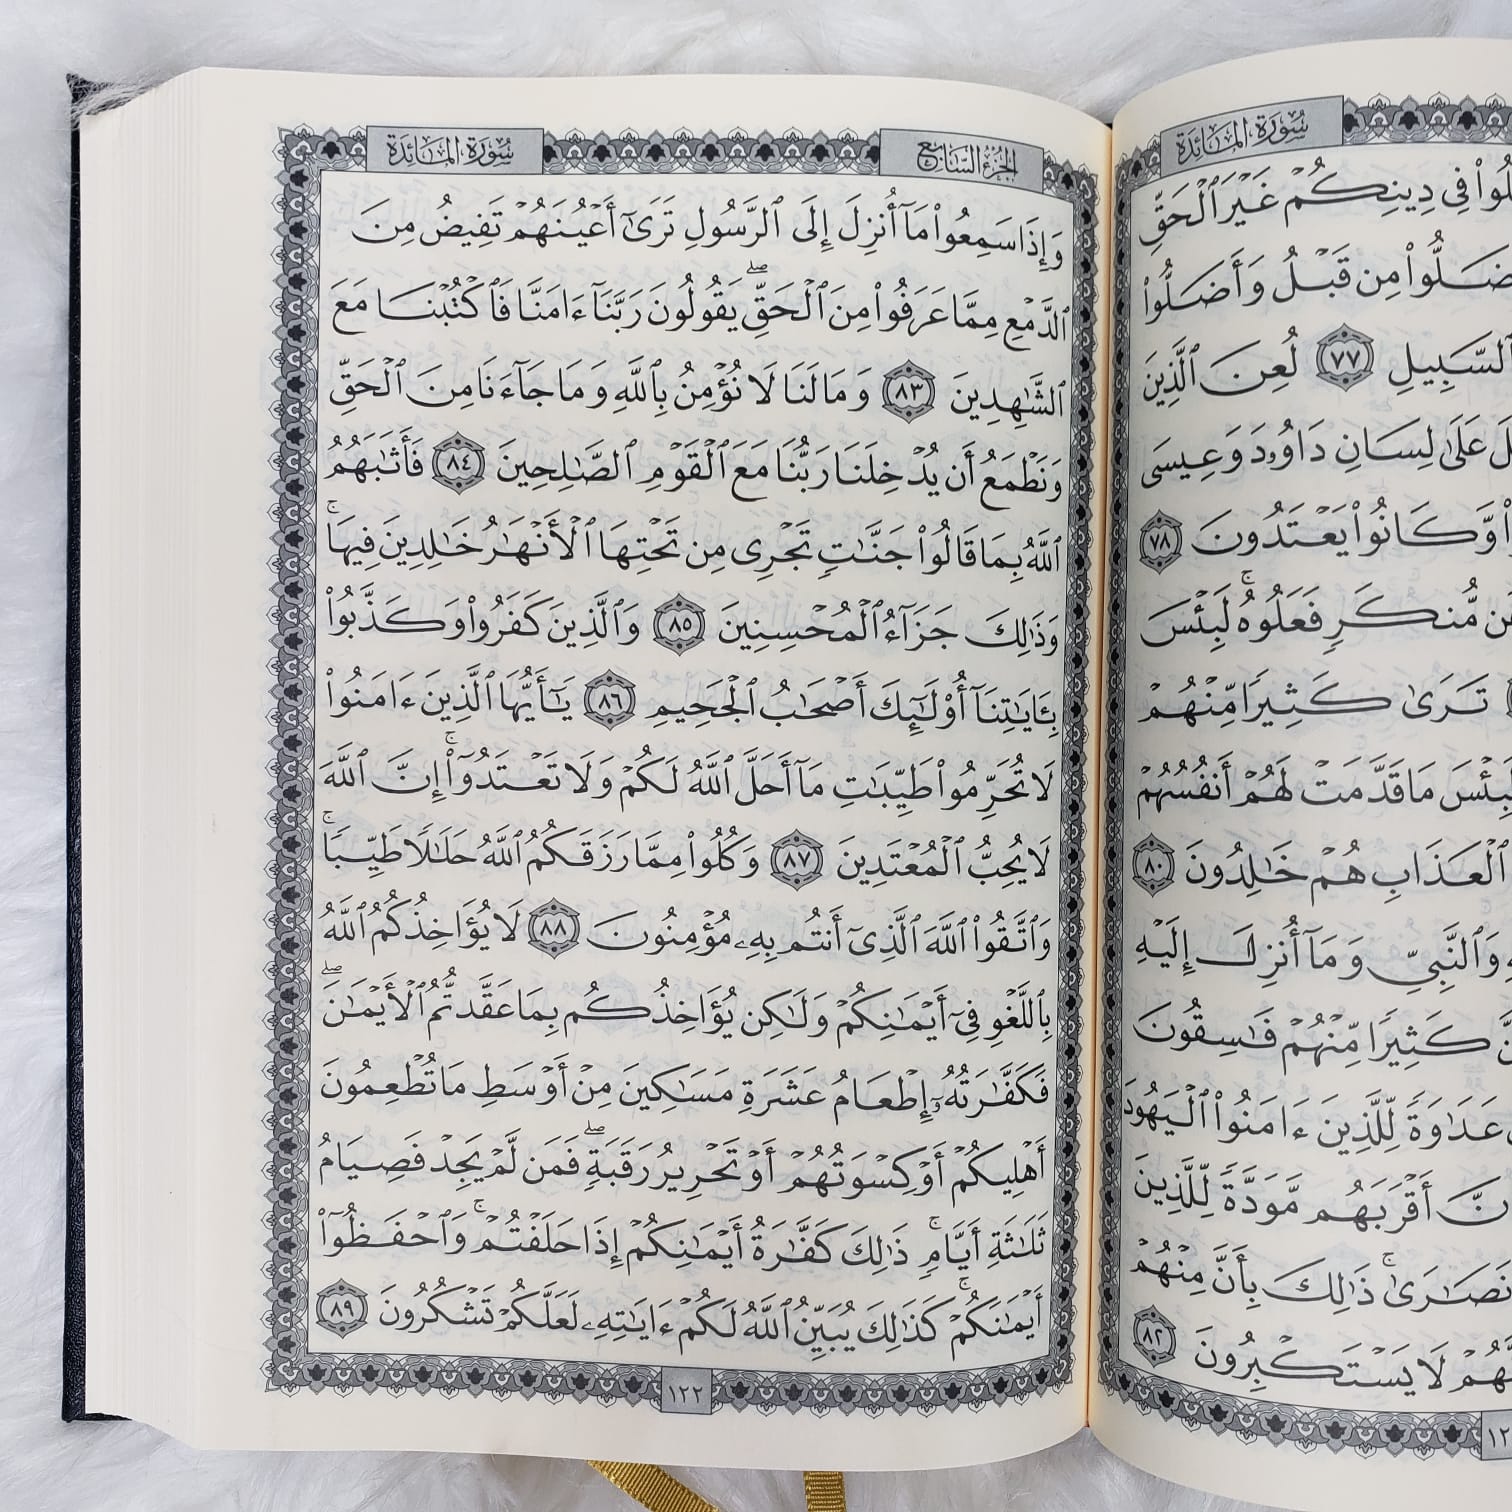 سُورَةُ المَائِدَة
فِي دِينِكُمْ غَيْرَ ٱلْحَقِّ
ضَلُّوا۟ مِن قَبْلُ وَأَضَلُّوا۟
ٱلسَّبِيلِ ٧٧ لُعِنَ ٱلَّذِينَ
عَلَىٰ لِسَانِ دَاوُۥدَ وَعِيسَى
وَّكَانُوا۟ يَعْتَدُونَ ٧٨
مُّنكَرٍ فَعَلُوهُۚ لَبِئْسَ
تَرَىٰ كَثِيرًا مِّنْهُمْ
مَا قَدَّمَتْ لَهُمْ أَنفُسُهُمْ
ٱلْعَذَابِ هُمْ خَٰلِدُونَ ٨٠
وَٱلنَّبِيِّ وَمَآ أُنزِلَ إِلَيْهِ
كَثِيرًا مِّنْهُمْ فَٰسِقُونَ
عَدَٰوَةً لِّلَّذِينَ ءَامَنُوا۟ ٱلْيَهُودَ
أَقْرَبَهُم مَّوَدَّةً لِّلَّذِينَ
نَصَٰرَىٰۚ ذَٰلِكَ بِأَنَّ مِنْهُمْ
لَا يَسْتَكْبِرُونَ ٨٢
الجُزءُ السَّابِعُ
سُورَةُ المَائِدَة
وَإِذَا سَمِعُوا۟ مَآ أُنزِلَ إِلَى ٱلرَّسُولِ تَرَىٰٓ أَعْيُنَهُمْ تَفِيضُ مِنَ
ٱلدَّمْعِ مِمَّا عَرَفُوا۟ مِنَ ٱلْحَقِّۖ يَقُولُونَ رَبَّنَآ ءَامَنَّا فَٱكْتُبْنَا مَعَ
ٱلشَّٰهِدِينَ ٨٣ وَمَا لَنَا لَا نُؤْمِنُ بِٱللَّهِ وَمَا جَآءَنَا مِنَ ٱلْحَقِّ
وَنَطْمَعُ أَن يُدْخِلَنَا رَبُّنَا مَعَ ٱلْقَوْمِ ٱلصَّٰلِحِينَ ٨٤ فَأَثَٰبَهُمُ
ٱللَّهُ بِمَا قَالُوا۟ جَنَّٰتٍ تَجْرِى مِن تَحْتِهَا ٱلْأَنْهَٰرُ خَٰلِدِينَ فِيهَاۚ
وَذَٰلِكَ جَزَآءُ ٱلْمُحْسِنِينَ ٨٥ وَٱلَّذِينَ كَفَرُوا۟ وَكَذَّبُوا۟
بِـَٔايَٰتِنَآ أُو۟لَٰٓئِكَ أَصْحَٰبُ ٱلْجَحِيمِ ٨٦ يَٰٓأَيُّهَا ٱلَّذِينَ ءَامَنُوا۟
لَا تُحَرِّمُوا۟ طَيِّبَٰتِ مَآ أَحَلَّ ٱللَّهُ لَكُمْ وَلَا تَعْتَدُوٓا۟ۚ إِنَّ ٱللَّهَ
لَا يُحِبُّ ٱلْمُعْتَدِينَ ٨٧ وَكُلُوا۟ مِمَّا رَزَقَكُمُ ٱللَّهُ حَلَٰلًا طَيِّبًاۚ
وَٱتَّقُوا۟ ٱللَّهَ ٱلَّذِىٓ أَنتُم بِهِۦ مُؤْمِنُونَ ٨٨ لَا يُؤَاخِذُكُمُ ٱللَّهُ
بِٱللَّغْوِ فِىٓ أَيْمَٰنِكُمْ وَلَٰكِن يُؤَاخِذُكُم بِمَا عَقَّدتُّمُ ٱلْأَيْمَٰنَۖ
فَكَفَّٰرَتُهُۥٓ إِطْعَامُ عَشَرَةِ مَسَٰكِينَ مِنْ أَوْسَطِ مَا تُطْعِمُونَ
أَهْلِيكُمْ أَوْ كِسْوَتُهُمْ أَوْ تَحْرِيرُ رَقَبَةٍۖ فَمَن لَّمْ يَجِدْ فَصِيَامُ
ثَلَٰثَةِ أَيَّامٍۚ ذَٰلِكَ كَفَّٰرَةُ أَيْمَٰنِكُمْ إِذَا حَلَفْتُمْۚ وَٱحْفَظُوٓا۟
أَيْمَٰنَكُمْۚ كَذَٰلِكَ يُبَيِّنُ ٱللَّهُ لَكُمْ ءَايَٰتِهِۦ لَعَلَّكُمْ تَشْكُرُونَ ٨٩
١٢٢